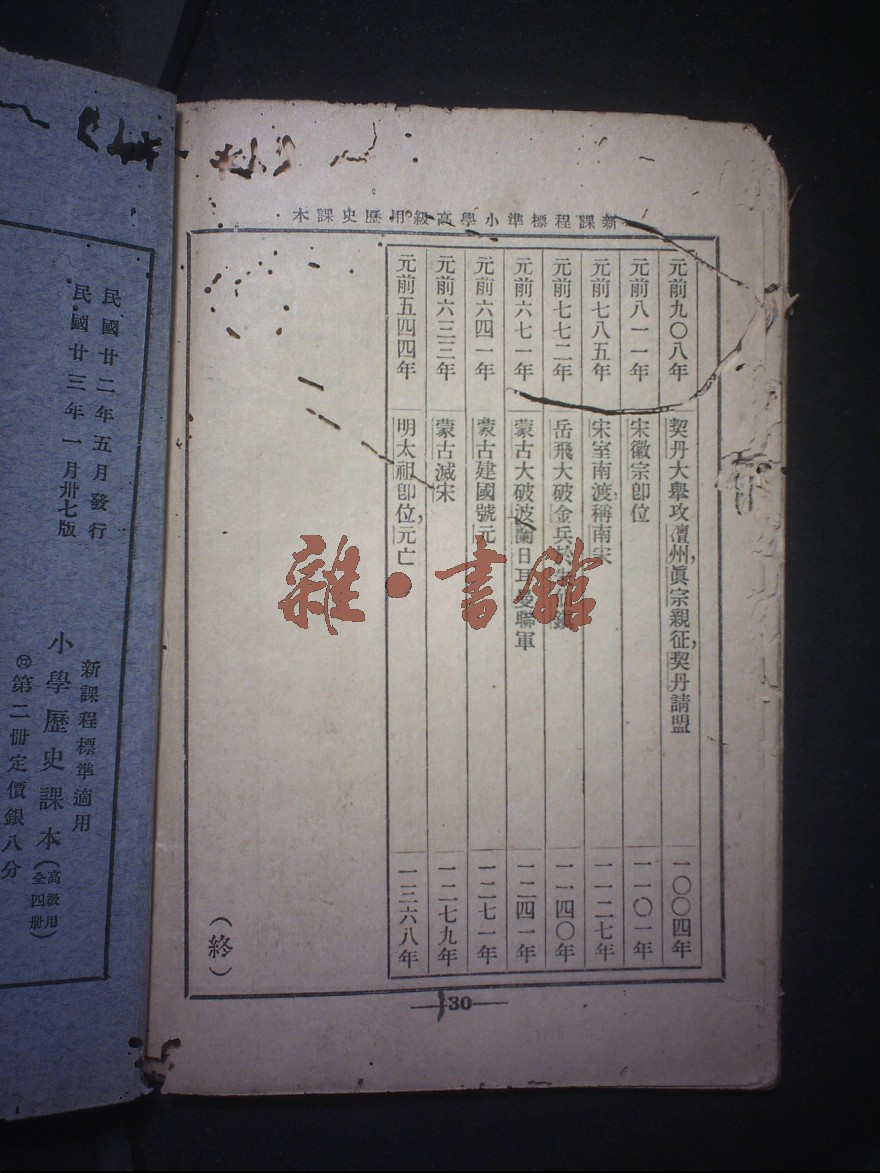 新課程標準小學高級用歷史課本
元前九〇八年 契丹大舉攻澶州，眞宗親征，契丹請盟 一〇〇四年
元前八一一年 宋徽宗卽位 一一〇一年
元前七八五年 宋室南渡，稱南宋 一一二七年
元前七七二年 岳飛大破金兵於 一一四〇年
元前六七一年 蒙古大破波蘭日耳曼聯軍 一二四一年
元前六四一年 蒙古建國號元 一二七一年
元前六三三年 蒙古滅宋 一二七九年
元前五四四年 明太祖卽位，元亡 一三六八年
（終）
30
民國廿二年五月發行
民國廿三年一月卅七版
新課程標準適用
小學歷史課本（高級用全四册）
第二册定價銀八分
雜·書館